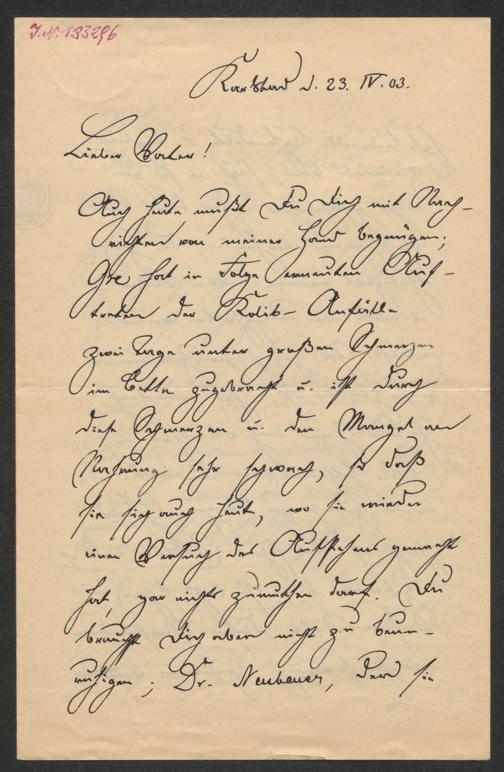 J.N. 193296
Karlsbad d. 23. IV. 03.
Lieber Vater!
Auch heute mußt Du Dich mit Nach-
richten von meiner Hand begnügen;
hat in Folge erneuten Auf-
treten der Kolik-Anfälle
zwei Tage unter großen Schmerzen
im Bette zugebracht u. ist durch
diese Schmerzen u. den Mangel an
Nahrung sehr schwach, so daß
sie sich auch heut, wo sie wieder
einen Versuch des Aufstehens gemacht
hat, gar nichts zumuthen darf. Du
brauchst Dich aber nicht zu beun-
ruhigen; Dr. Neubauer, der sie